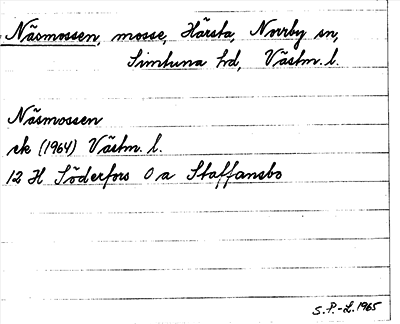 Näsmossen, mosse, Härsta, Norrby sn,
Simtuna hd, Västm. l.
Näsmossen
ek (1964) Västm. l.
12 H Söderfors 0 a Staffansbo
S.P.-L. 1965